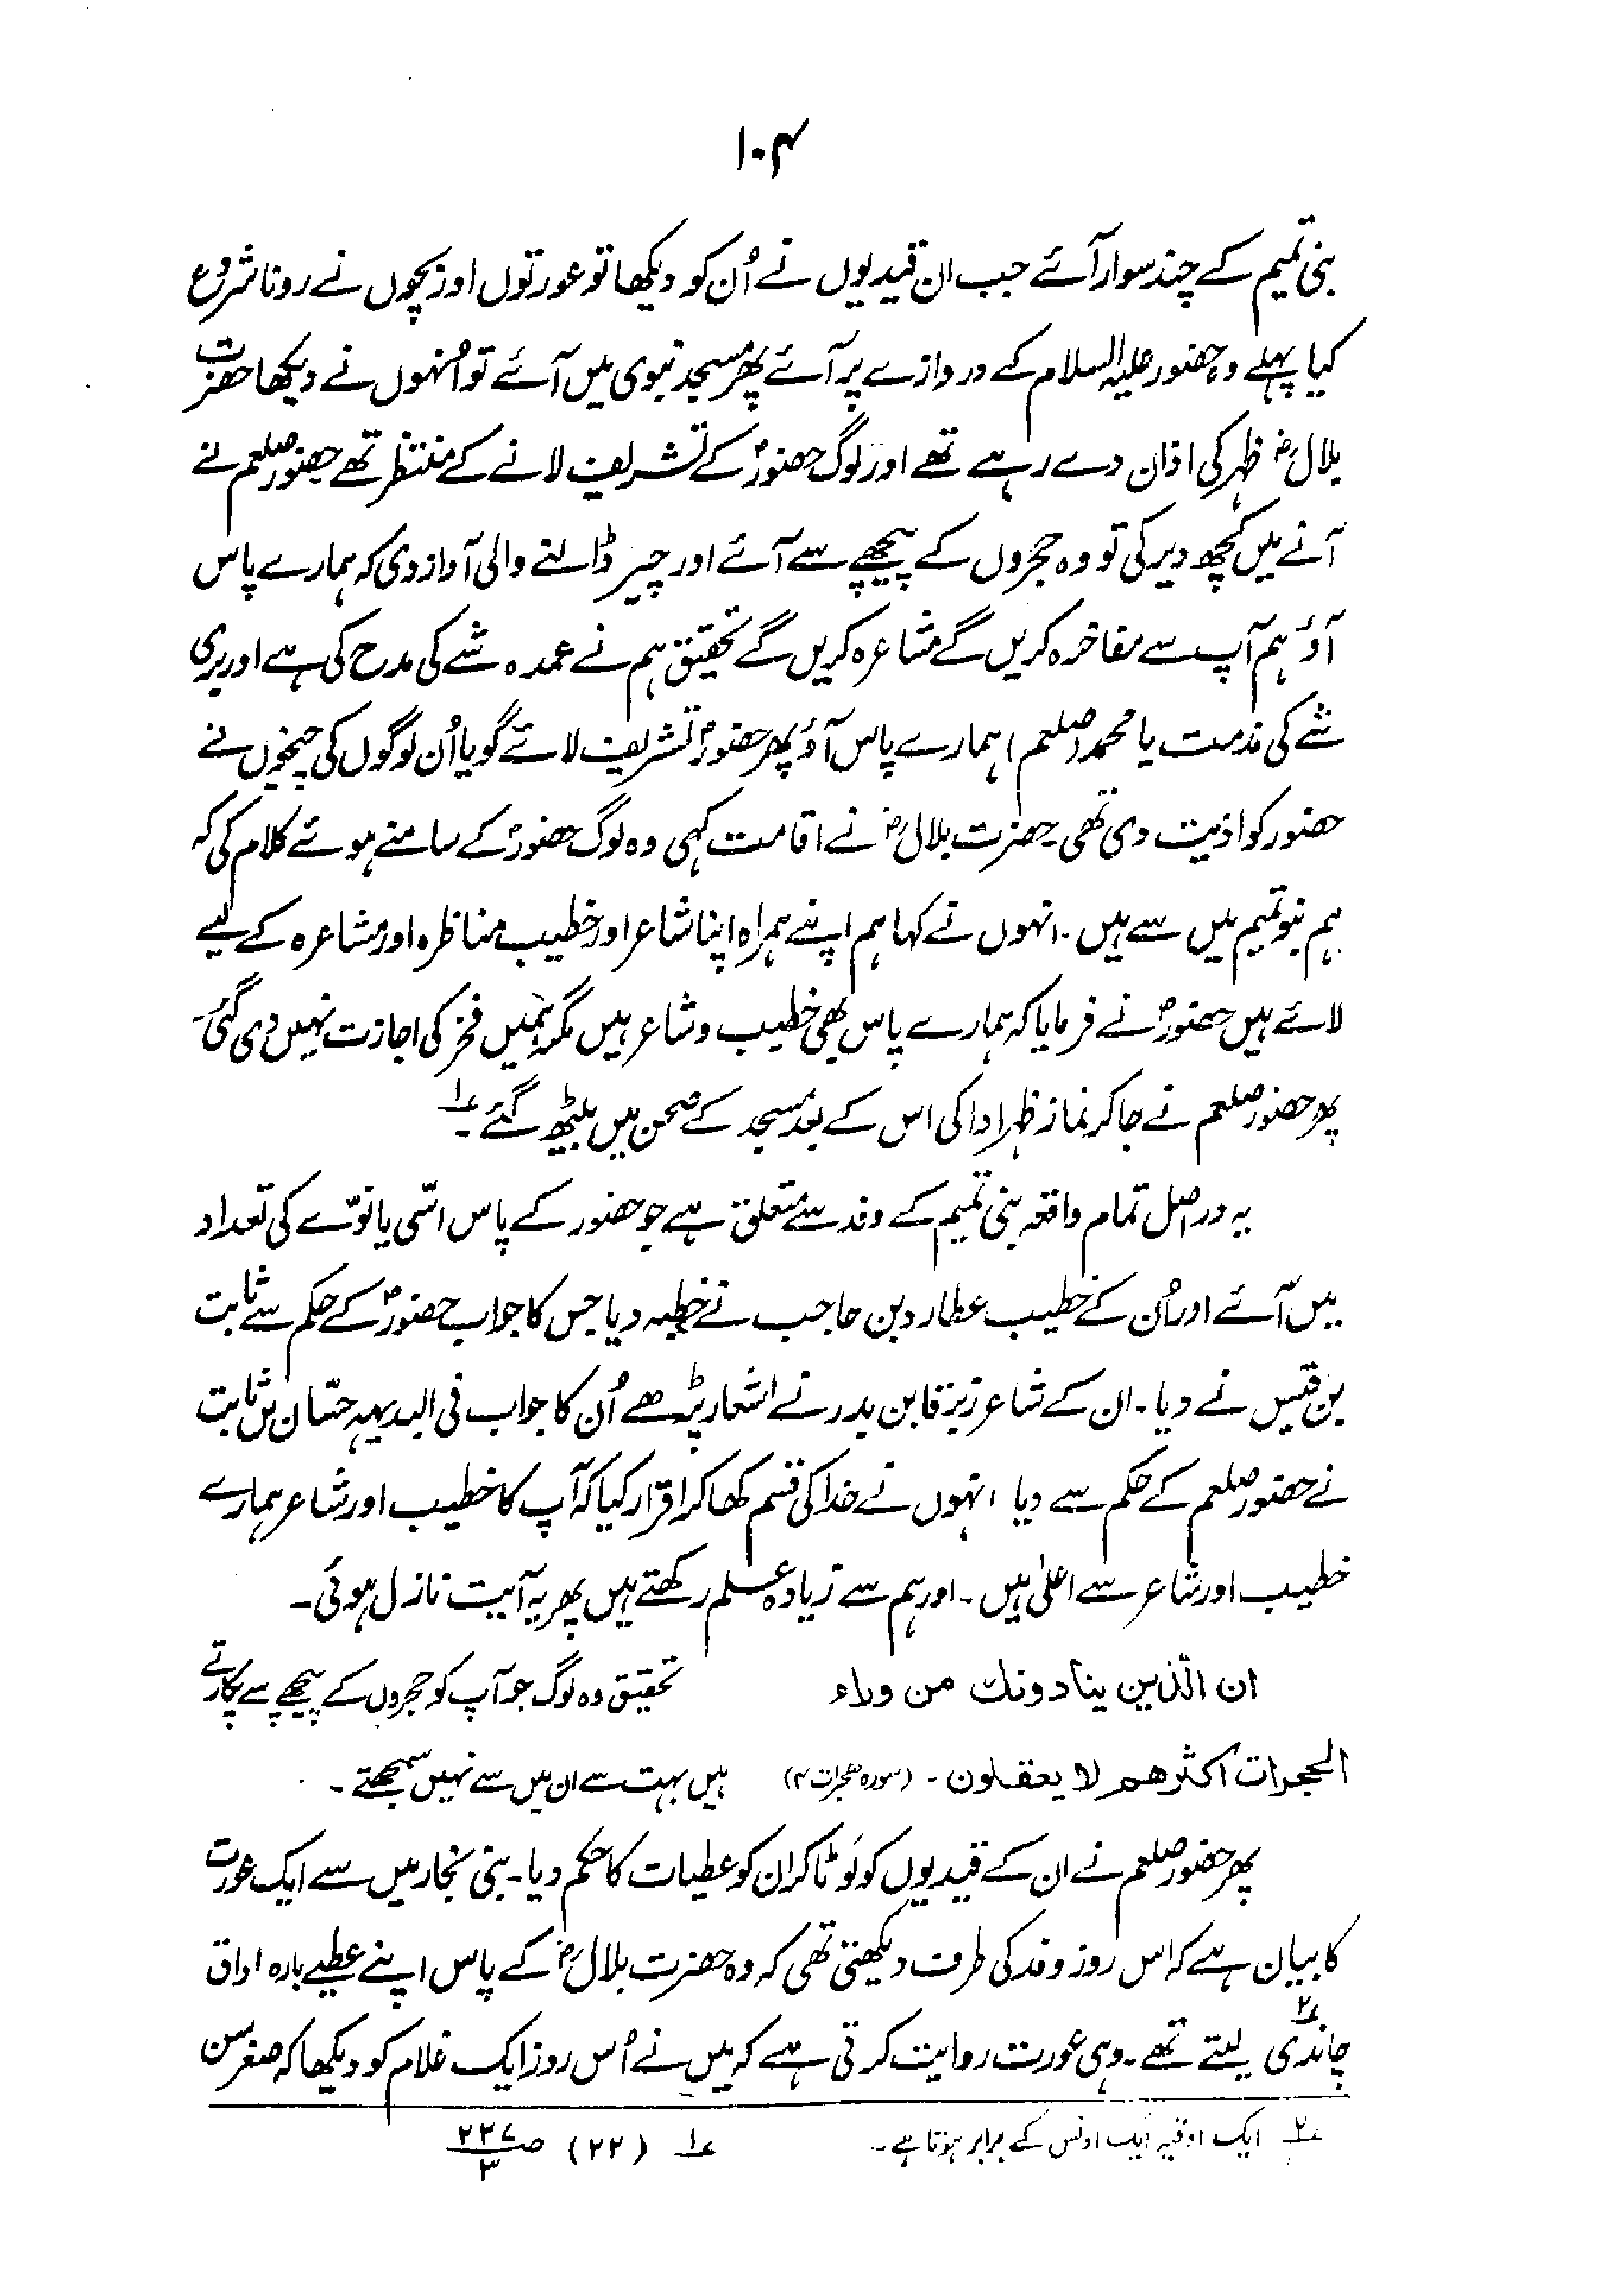 ۱۰۴
بنی تمیم کے چند سوار آئے جب ان قیدیوں نے اُن کو دیکھا تو عورتوں اور بچوں نے رونا شروع
کیا پہلے وہ حضور علیہ السلام کے دروازے پر آئے پھر مسجد نبوی میں آئے تو اُنہوں نے دیکھا حضرت
بلالؓ ظہر کی اذان دے رہے تھے اور لوگ حضورؐ کے تشریف لانے کے منتظر تھے حضور صلعم نے
آنے میں کچھ دیر کی تو وہ حجروں کے پیچھے سے آئے اور چیر ڈالنے والی آواز دی کہ ہمارے پاس
آؤ ہم آپ سے مفاخرہ کریں گے مشاعرہ کریں گے تحقیق ہم نے عمدہ شے کی مدح کی ہے اور بری
شے کی مذمت یا محمد (صلعم) ہمارے پاس آؤ پھر حضورؐ تشریف لائے گویا اُن لوگوں کی چیخوں نے
حضور کو اذیت دی تھی۔ حضرت بلالؓ نے اقامت کہی وہ لوگ حضورؐ کے سامنے ہوئے کلام کی کہ
ہم بنو تمیم میں سے ہیں۔ انہوں نے کہا ہم اپنے ہمراہ اپنا شاعر اور خطیب مناظرہ اور مشاعرہ کے لیے
لائے ہیں حضورؐ نے فرمایا کہ ہمارے پاس بھی خطیب و شاعر ہیں مگر ہمیں فخر کی اجازت نہیں دی گئی
پھر حضور صلعم نے جا کر نماز ظہر ادا کی اس کے بعد مسجد کے صحن میں بیٹھ گئے۔ ؏۱
یہ دراصل تمام واقعہ بنی تمیم کے وفد سے متعلق ہے جو حضور کے پاس اسّی یا نوّے کی تعداد
میں آئے اور اُن کے خطیب عطارد بن حاجب نے خطبہ دیا جس کا جواب حضورؐ کے حکم سے ثابت
بن قیس نے دیا۔ ان کے شاعر زبرقا بن بدر نے اشعار پڑھے اُن کا جواب فی البدیہہ حسّان بن ثابت
نے حضور صلعم کے حکم سے دیا انہوں نے خدا کی قسم کھا کر اقرار کیا کہ آپ کا خطیب اور شاعر ہمارے
خطیب اور شاعر سے اعلیٰ ہیں۔ اور ہم سے زیادہ علم رکھتے ہیں پھر یہ آیت نازل ہوئی۔
ان الّذین ینادونك من وراء تحقیق وہ لوگ جو آپ کو حجروں کے پیچھے سے پکارتے
الحجرات اکثرهم لا یعقلون۔ (سورہ حجرات ۴) ہیں بہت سے ان میں سے نہیں سمجھتے۔
پھر حضور صلعم نے ان کے قیدیوں کو لَوٹا کر ان کو عطیات کا حکم دیا۔ بنی نجار میں سے ایک عورت
کا بیان ہے کہ اس روز وفد کی طرف دیکھتی تھی کہ وہ حضرت بلالؓ کے پاس اپنے عطیے بارہ اواق
چاندی ؏۲ لیتے تھے۔ وہی عورت روایت کرتی ہے کہ میں نے اُس روز ایک غلام کو دیکھا کہ صغر سن
؏۲ ایک اوقیہ ایک اونس کے برابر ہوتا ہے۔ ؏۱ (۲۲) صـ ۲۲۷/۳